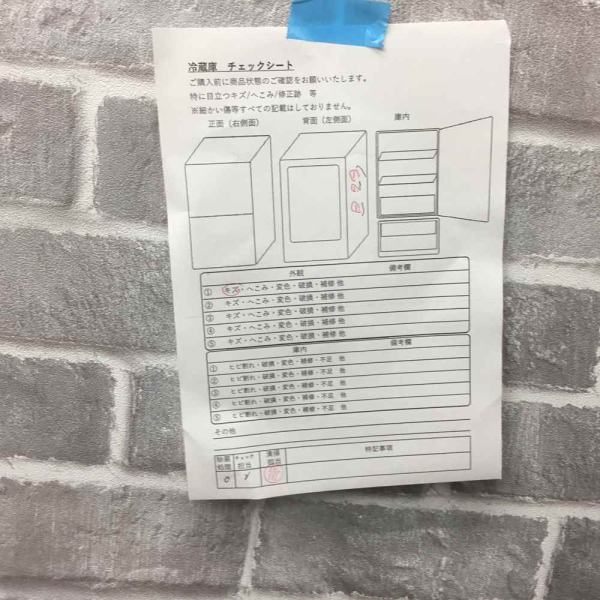 冷蔵庫　チェックシート
ご購入前に商品状態のご確認をお願いいたします。
特に目立つキズ/へこみ/修正跡　等
※細かい傷等すべての記載はしておりません。
正面（右側面）　背面（左側面）　庫内
外観　備考欄
① キズ・へこみ・変色・破損・補修 他
② キズ・へこみ・変色・破損・補修 他
③ キズ・へこみ・変色・破損・補修 他
④ キズ・へこみ・変色・破損・補修 他
⑤ キズ・へこみ・変色・破損・補修 他
庫内　備考欄
① ヒビ割れ・破損・変色・補修・不足　他
② ヒビ割れ・破損・変色・補修・不足　他
③ ヒビ割れ・破損・変色・補修・不足　他
④ ヒビ割れ・破損・変色・補修・不足　他
⑤ ヒビ割れ・破損・変色・補修・不足　他
その他
除菌処理　チェック担当　清掃担当　特記事項